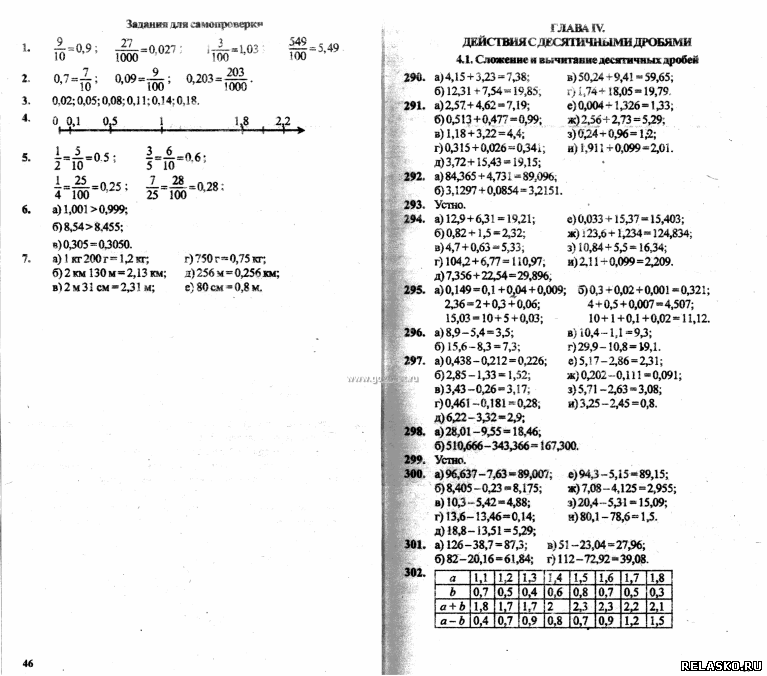 Задания для самопроверки
1. 9/10=0,9; 27/1000=0,027; 1 3/100=1,03 549/100=5,49
2. 0,7=7/10; 0,09=9/100; 0,203=203/1000.
3. 0,02; 0,05; 0,08; 0,11; 0,14; 0,18.
4. 0 0,1 0,5 1 1,8 2,2
5. 1/2=5/10=0.5; 3/5=6/10=0,6;
1/4=25/100=0,25; 7/25=28/100=0,28;
6. а) 1,001>0,999;
б) 8,54>8,455;
в) 0,305=0,3050.
7. а) 1 кг 200 г=1,2 кг; г) 750 г=0,75 кг;
б) 2 км 130 м=2,13 км; д) 256 м=0,256 км;
в) 2 м 31 см=2,31 м; е) 80 см=0,8 м.
46
ГЛАВА IV.
ДЕЙСТВИЯ С ДЕСЯТИЧНЫМИ ДРОБЯМИ
4.1. Сложение и вычитание десятичных дробей
290. а) 4,15+3,23=7,38; в) 50,24+9,41=59,65;
б) 12,31+7,54=19,85; г) 1,74+18,05=19,79.
291. а) 2,57+4,62=7,19; е) 0,004+1,326=1,33;
б) 0,513+0,477=0,99; ж) 2,56+2,73=5,29;
в) 1,18+3,22=4,4; з) 0,24+0,96=1,2;
г) 0,315+0,026=0,341; и) 1,911+0,099=2,01.
д) 3,72+15,43=19,15;
292. а) 84,365+4,731=89,096;
б) 3,1297+0,0854=3,2151.
293. Устно.
294. а) 12,9+6,31=19,21; е) 0,033+15,37=15,403;
б) 0,82+1,5=2,32; ж) 123,6+1,234=124,834;
в) 4,7+0,63=5,33; з) 10,84+5,5=16,34;
г) 104,2+6,77=110,97; и) 2,11+0,099=2,209.
д) 7,356+22,54=29,896;
295. а) 0,149=0,1+0,04+0,009; б) 0,3+0,02+0,001=0,321;
2,36=2+0,3+0,06; 4+0,5+0,007=4,507;
15,03=10+5+0,03; 10+1+0,1+0,02=11,12.
296. а) 8,9-5,4=3,5; в) 10,4-1,1=9,3;
б) 15,6-8,3=7,3; г) 29,9-10,8=19,1.
297. а) 0,438-0,212=0,226; е) 5,17-2,86=2,31;
б) 2,85-1,33=1,52; ж) 0,202-0,111=0,091;
в) 3,43-0,26=3,17; з) 5,71-2,63=3,08;
г) 0,461-0,181=0,28; и) 3,25-2,45=0,8.
д) 6,22-3,32=2,9;
298. а) 28,01-9,55=18,46;
б) 510,666-343,366=167,300.
299. Устно.
300. а) 96,637-7,63=89,007; е) 94,3-5,15=89,15;
б) 8,405-0,23=8,175; ж) 7,08-4,125=2,955;
в) 10,3-5,42=4,88; з) 20,4-5,31=15,09;
г) 13,6-13,46=0,14; и) 80,1-78,6=1,5.
д) 18,8-13,51=5,29;
301. а) 126-38,7=87,3; в) 51-23,04=27,96;
б) 82-20,16=61,84; г) 112-72,92=39,08.
302. a 1,1 1,2 1,3 1,4 1,5 1,6 1,7 1,8
b 0,7 0,5 0,4 0,6 0,8 0,7 0,5 0,3
a+b 1,8 1,7 1,7 2 2,3 2,3 2,2 2,1
a-b 0,4 0,7 0,9 0,8 0,7 0,9 1,2 1,5
RELASKO.RU